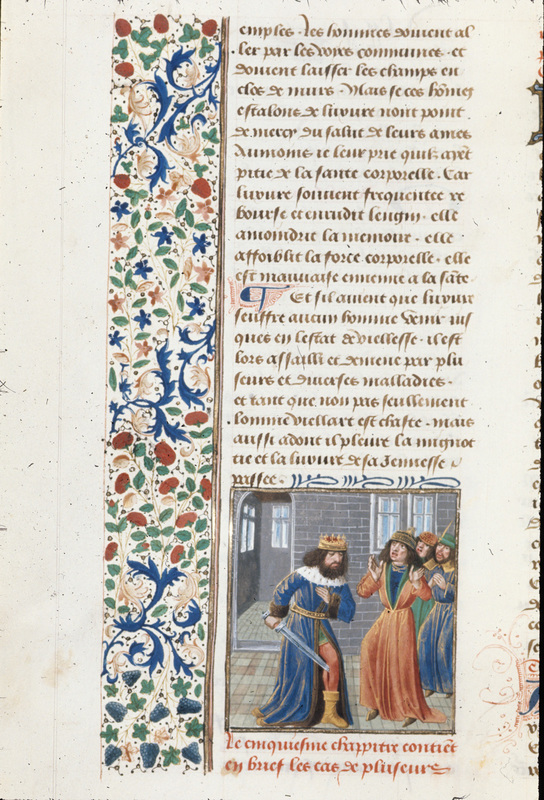 emples. Les hommes doivent al
ler par les voies communes. et
doivent laisser les champs en
clos de murs. Mais se ces hōmes
estalons de luxure nont point
de mercy du salut de leurs ames
Aumoins ie leur prie quilz ayēt
pitie de la sante corporelle. Car
luxure souvent frequentee re
bourse et enrudit lengin. elle
amoindrit la memoire. elle
affoiblit la force corporelle. elle
est mauvaise ennemie a la sāte.
Et sil avient que luxure
seuffre aucun homme venir ius
ques en lestat de viellesse. il est
lors assailli et demene par plu
seurs et diverses malladies.
et tant que non pas seullement
lomme viellart est chaste. mais
aussi adont il pleure la mignot
tie et la luxure de sa Jennesse
passee.
Le cinquiesme chappitre contiēt
en brief les cas de pluseurs